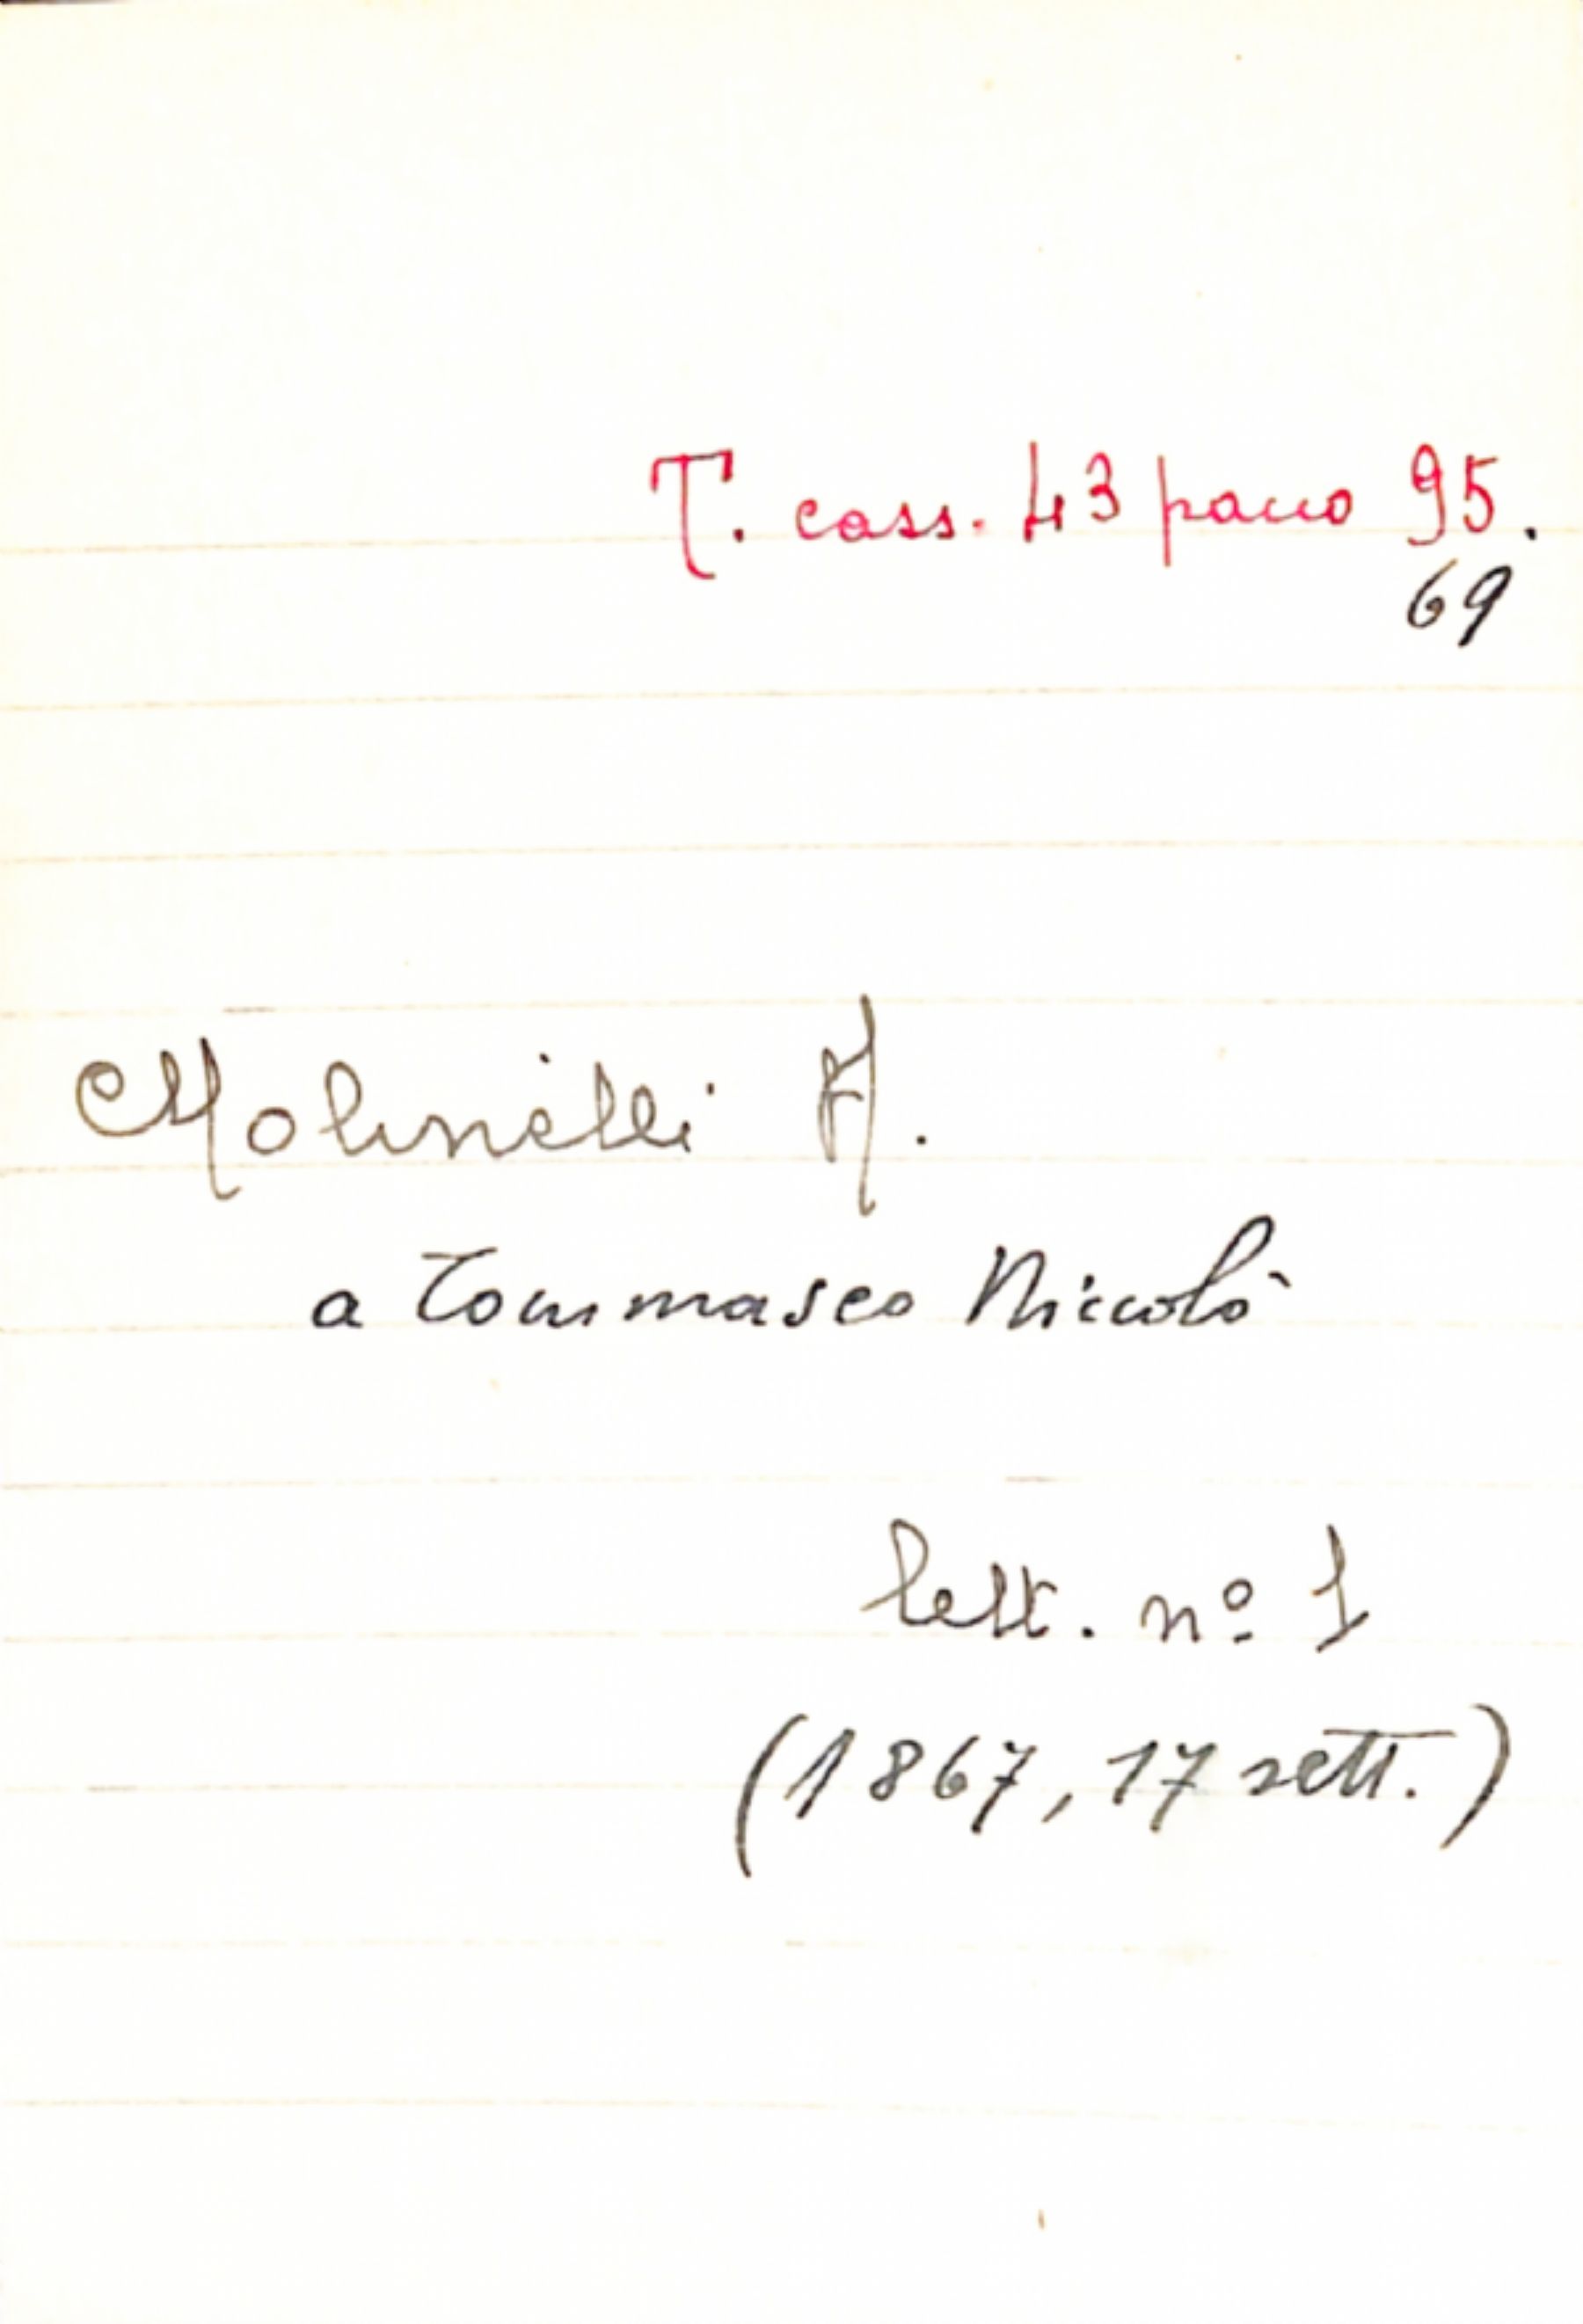 T. cass. 43 pacco 95.
69
Molinelli A.
a Tommaseo Niccolò
lett. nº 1
(1867, 17 sett.)